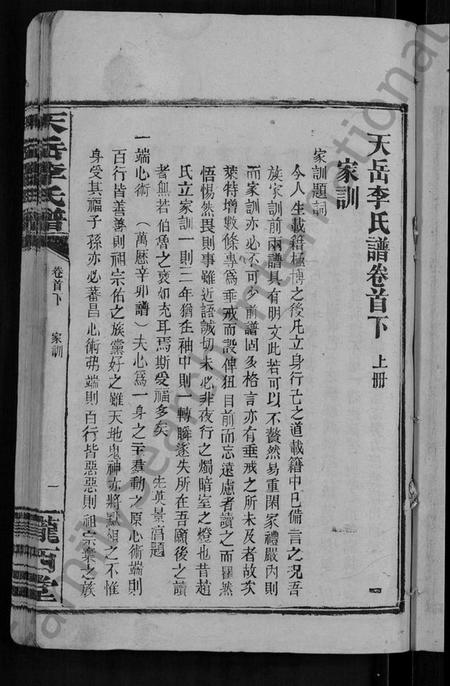 天岳李氏譜卷首下 上册
家訓
家訓題詞
今人生載籍極博之後凡立身行己之道載籍中已備言之況吾
族家訓前兩譜具有明文此若可以不贅然易重閑家禮嚴內則
而家訓亦必不可少前譜固多格言亦有垂戒之所未及者故茲
特增數條專為垂戒而設俾狃目前而忘遠慮者讀之而瞿然
悟惕然畏則事雖近語誠切未必非夜行之燭暗室之燈也昔趙
氏立家訓一則三年猶在袖中則一轉瞬遂失所在吾願後之讀
者無若伯魯之褎如充耳焉斯受福多矣 先英景高題
一端心術 (萬曆辛卯譜) 夫心為一身之主羣動之原心術端則
百行皆善善則祖宗佑之族黨好之雖天地鬼神亦將默相之不惟
身受其福子孫亦必蕃昌心術不端則百行皆惡惡則祖宗棄之族
天岳李氏譜
卷首下 家訓
一
隴西堂
Family Search International